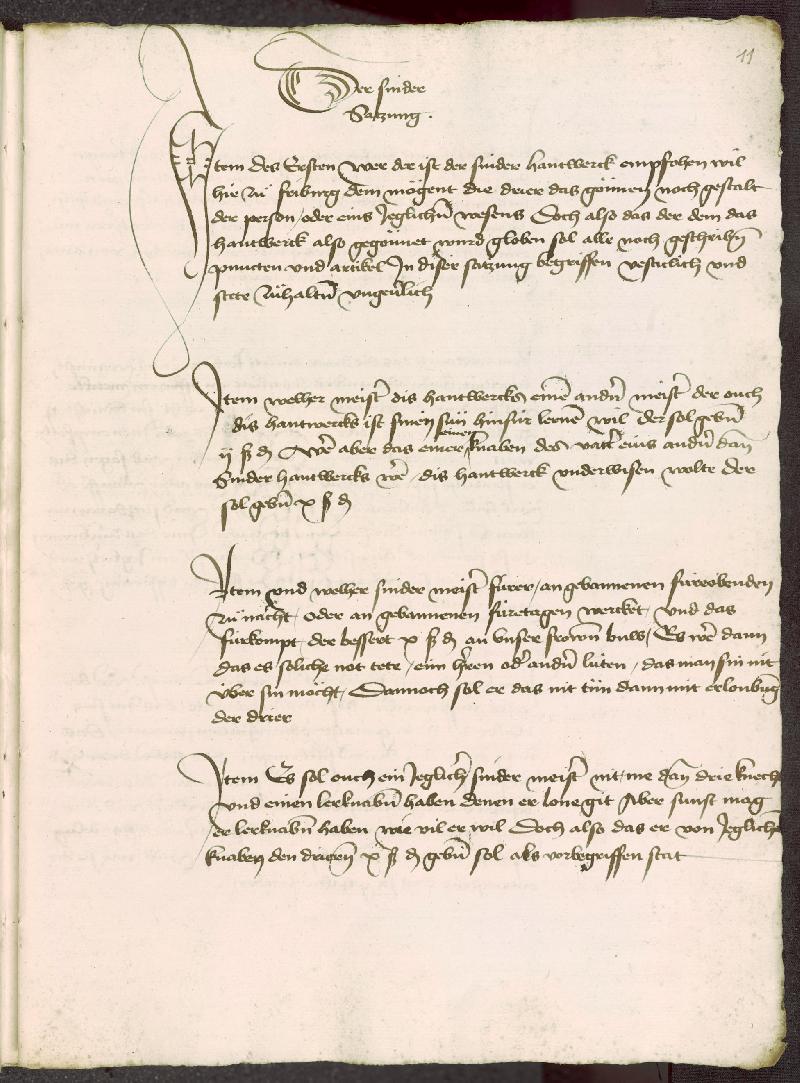 11
Der sinder
Satzung .
Item des Ersten wer der ist der sinder hantwerck empfohen wil
hie zü friburg dem mögent die drier das gönnen noch gestalt
der person / oder eins Jeglichen wesens Doch also das der dem das
hantwerck also gegönnet wurd globen sol alle noch geschriben
puncten vnd artikel In diser satzung begriffen vesticlich vnd
stete zühalten vngeuerlich
Item welher meister dis hantwercks einem andern meister der ouch
dis hantwercks ist sinen sün hinfür lernen wil der sol geben
ij ß ₰ Wer aber das einer einen knaben des vatter eins andern dan
Sinder hantwercks wer / dis hantwerck vnderwisen wolte der
sol geben x ß ₰
Item vnd welher sinder meister fürer / an gebannenen fürobenden
zü nacht / oder an gebannenen füretagen wercket / vnd das
fürkompt der bessert x ß ₰ an vnser frowen buw / Es wer dann
das es soliche not tete / eim herren oder andern lüten / das man sin nit
vber sin möcht / Dannoch sol er das nit tün dann mit erloubung
der drier
Item Es sol ouch ein Jeglicher sinder meister nit me dan drie knecht
vnd einen lerknaben haben denen er lone git Aber sunst mag
er lerknaben haben wie vil er wil Doch also das er von Jeglichem
knaben den drieren x ß ₰ geben sol als vorbegriffen stat